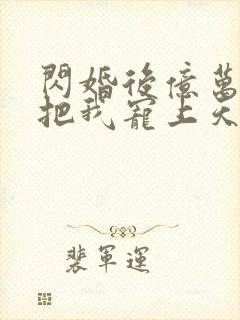 閃婚後億萬
把我寵上天
裴軍運